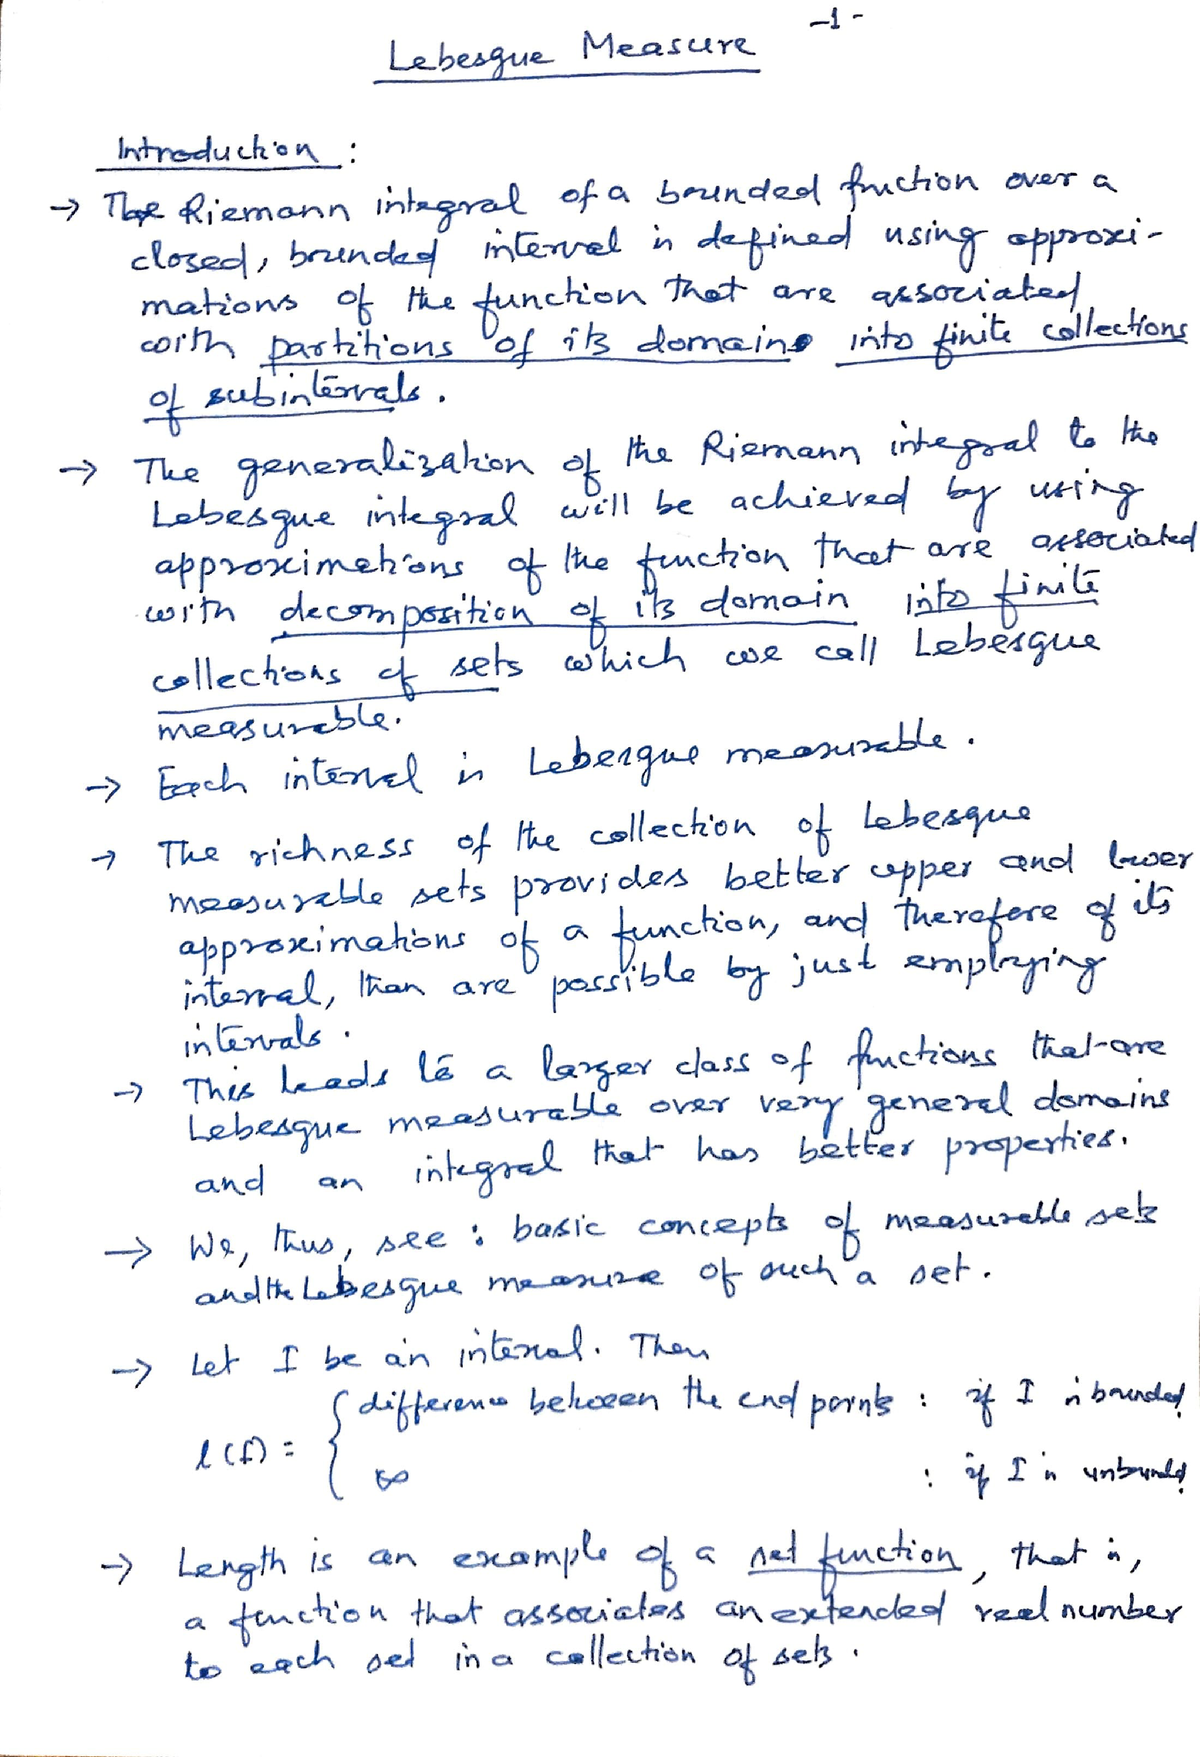 -1-
Lebesgue Measure
Introduction :
→ The Riemann integral of a bounded function over a
closed, bounded interval is defined using approxi-
mations of the function that are associated
with partitions of its domain into finite collections
of subintervals.
→ The generalization of the Riemann integral to the
Lebesgue integral will be achieved by using
approximations of the function that are associated
with decomposition of its domain into finite
collections of sets which we call Lebesgue
measurable.
→ Each interval is Lebesgue measurable.
→ The richness of the collection of Lebesgue
measurable sets provides better upper and lower
approximations of a function, and therefore of its
interval, than are possible by just employing
intervals.
→ This leads to a larger class of functions that are
Lebesgue measurable over very general domains
and an integral that has better properties.
→ We, thus, see : basic concepts of measurable sets
and the Lebesgue measure of such a set.
→ Let I be an interval. Then
l(I) = { difference between the end points : if I is bounded
∞ : if I is unbounded
→ Length is an example of a set function, that is,
a function that associates an extended real number
to each set in a collection of sets.